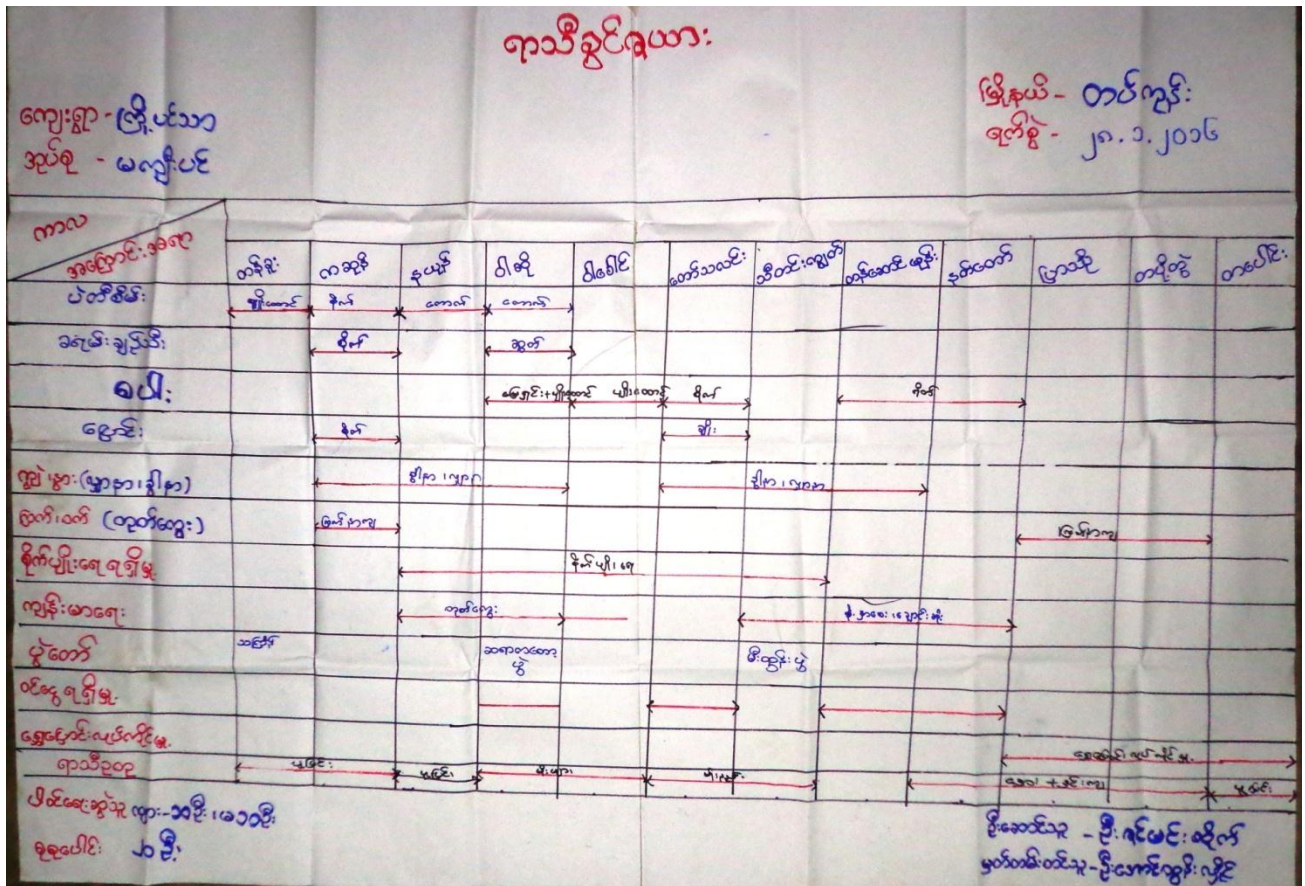 ရာသီခွင်ဇယား
ကျေးရွာ - ကြို့ပင်သာ
မြို့နယ် - တပ်ကုန်း
အုပ်စု - မကျီးပင်
ရက်စွဲ - ၂၈.၁.၂၀၁၆
ကာလ
အကြောင်းအရာ
တန်ခူး ကဆုန် နယုန် ဝါဆို ဝါခေါင် တော်သလင်း သီတင်းကျွတ် တန်ဆောင်မုန်း နတ်တော် ပြာသို တပို့တွဲ တပေါင်း
ပဲတီစိမ်း ပျိုးထောင် စိုက် ကောက် ကောက်
ခရမ်းချဉ်သီး စိုက် ဆွတ်
စပါး မြေပြင်+ပျိုးထောင် ပျိုးထောင် စိုက် ရိတ်
စိုက် ချိုး
ကျွဲ၊နွား (လျှာနာ၊ခွါနာ) ခွါနာ၊လျှာနာ ခွါနာ၊လျှာနာ
ကြက်၊ဝက် (တုတ်ကွေး) ကြက်နာကျ ကြက်နာကျ
စိုက်ပျိုးရေရရှိမှု စိုက်ပျိုးရေ
ကျန်းမာရေး တုတ်ကွေး နှာစေး၊ချောင်းဆိုး
ပွဲတော် သင်္ကြန် ဆရာတော့ပွဲ မီးထွန်းပွဲ
ဝင်ငွေရရှိမှု
ရွှေ့ပြောင်းလုပ်ကိုင်မှု ရွှေ့ပြောင်းလုပ်ကိုင်မှု
ရာသီဥတု ပူပြင်း ပူပြင်း မိုးများ မိုးများ ပူပြင်း
ပါဝင်ရေးဆွဲသူ ကျား-၁၀ဦး၊မ၁၀ဦး
စုစုပေါင်း ၂၀ဦး
ဦးဆောင်သူ - ဦးဇင်မင်းထိုက်
မှတ်တမ်းတင်သူ - ဦးအောင်ထွန်းလှိုင်